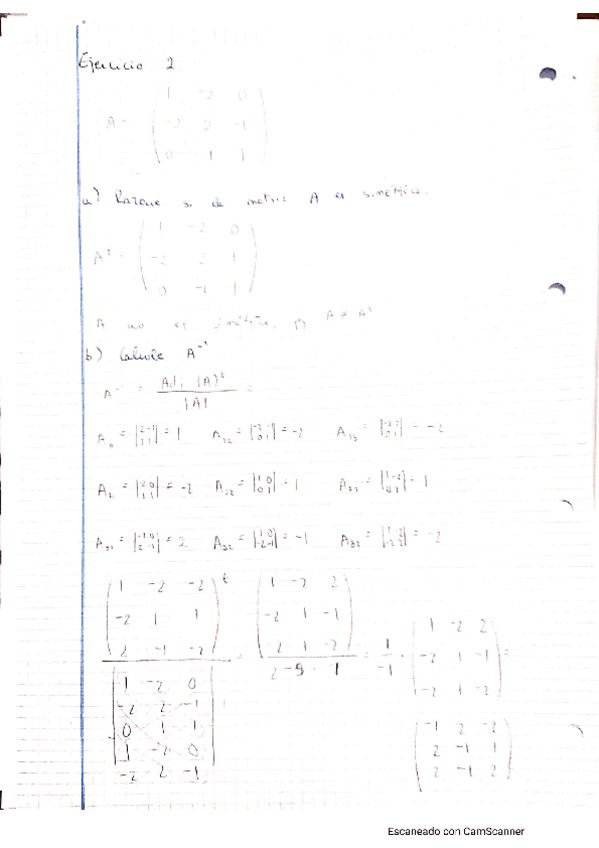 Ejercicio 2
A= ( 1 -2 0
-2 2 -1
0 1 1 )
a) Razone si la matriz A es simétrica.
A^t = ( 1 -2 0
-2 2 1
0 -1 1 )
A no es simétrica A ≠ A^t
b) Calcule A^-1
A^-1 = Adj (A)^t / |A| =
A = |2 -1 1 1| = 1 A12 = |-2 -1 0 1| = -2 A13 = = -2
= -2 A22 = |1 0 0 1| = 1 = 1
A31 = = 2 A32 = |1 0 -2 -1| = -1 = -2
( 1 -2 -2
-2 1 1
2 -1 -2 )^t
| 1 -2 0
-2 2 -1
0 1 1
1 -2 0
-2 2 -1 |
= ( 1 -2 2
-2 1 -1
-2 1 -2 )
= 1/-1 · ( 1 -2 2
-2 1 -1
-2 1 -2 ) =
( -1 2 -2
2 -1 1
2 -1 2 )
Escaneado con CamScanner